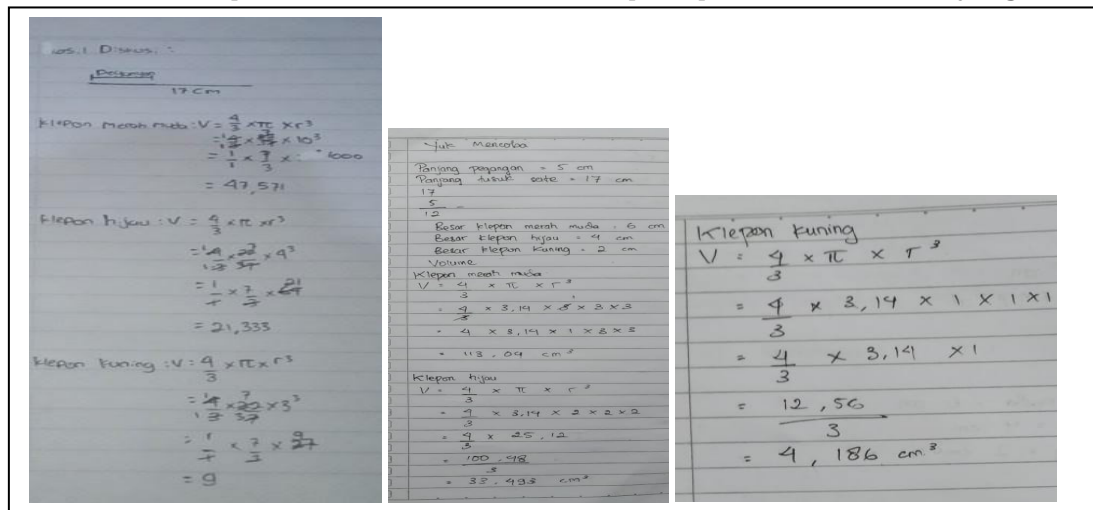 Hasil Diskusi :
17 cm
Klepon merah muda : V = 4/3 × π × r³
× 10³
= 1/1 × 7/3 × 1000
= 47,571
Klepon hijau : V = 4/3 × π × r³
× 4³
= 21,333
Klepon kuning : V = 4/3 × π × r³
× 3³
= 9
Yuk Mencoba
Panjang pegangan = 5 cm
Panjang tusuk sate = 17 cm
17
5
12
Besar klepon merah muda = 6 cm
Besar klepon hijau = 4 cm
Besar klepon kuning = 2 cm
Volume
Klepon merah muda
V = 4/3 × π × r³
= 4/3 × 3,14 × 3 × 3 × 3
= 4 × 3,14 × 1 × 3 × 3
= 113,04 cm³
Klepon hijau
V = 4/3 × π × r³
= 4/3 × 3,14 × 2 × 2 × 2
= 4/3 × 25,12
= 100,48/3
= 33,493 cm³
Klepon kuning
V = 4/3 × π × r³
= 4/3 × 3,14 × 1 × 1 × 1
= 4/3 × 3,14 × 1
= 12,56/3
= 4,186 cm³